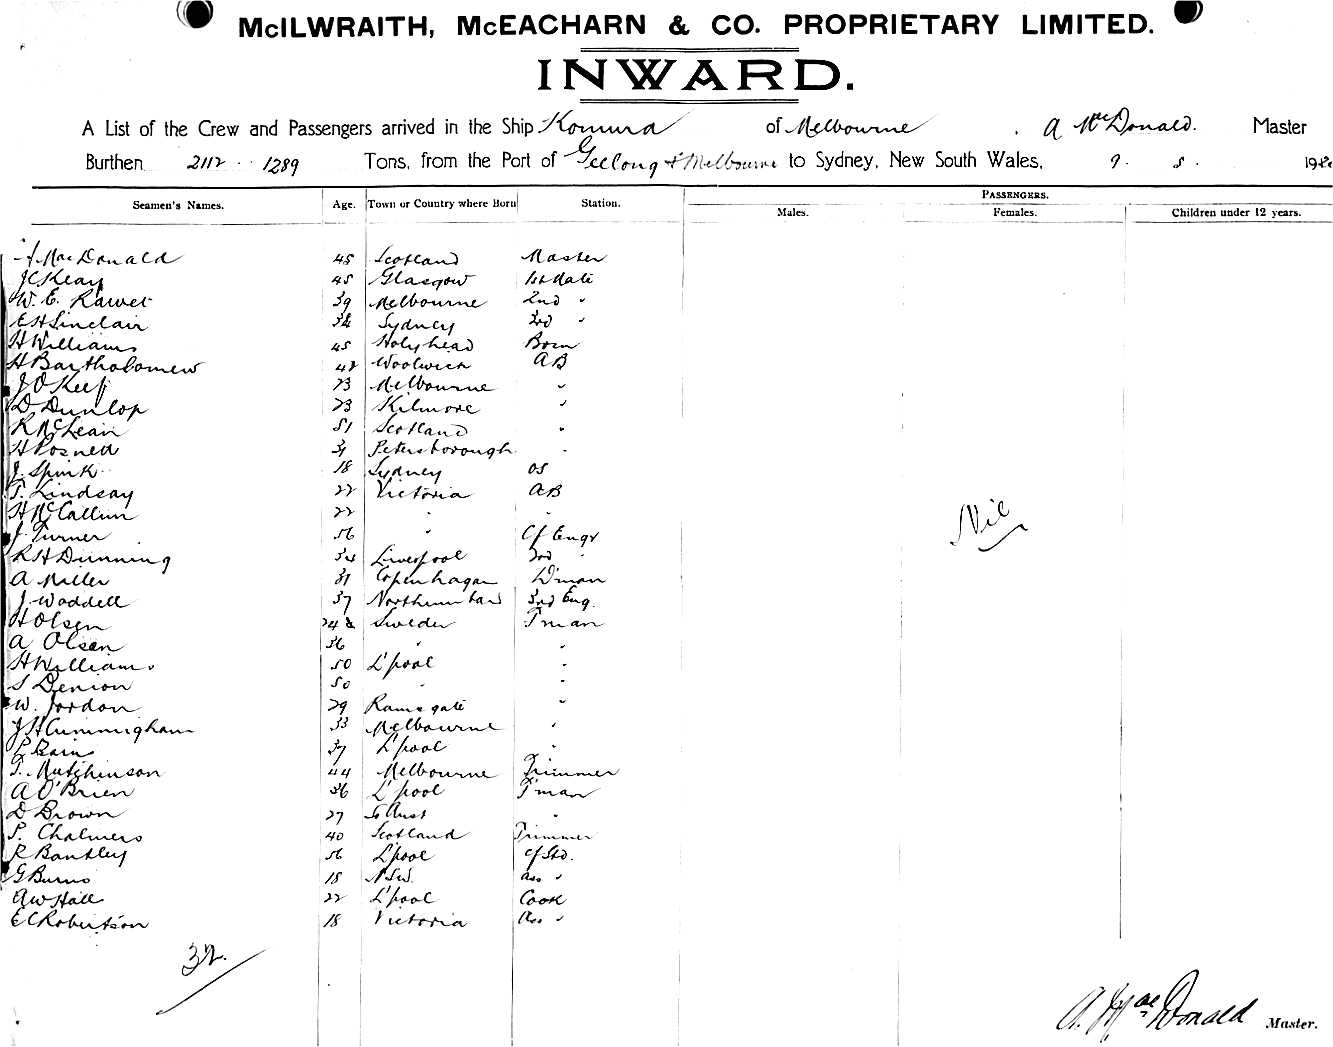 McILWRAITH, McEACHARN & CO. PROPRIETARY LIMITED.
INWARD.
A List of the Crew and Passengers arrived in the Ship Komura of Melbourne . A McDonald. Master
Burthen 2112 .. 1289 Tons, from the Port of Geelong & Melbourne to Sydney, New South Wales, 9. 8. 19
PASSENGERS.
Seamen's Names. Age. Town or Country where Born Station. Males. Females. Children under 12 years.
A MacDonald 45 Scotland Master
J C Keay 45 Glasgow 1st Mate
W. E. 39 Melbourne 2nd "
E H Sinclair 34 Sydney 3rd "
H Williams 45 Holyhead Bosn
H Bartholomew 42 Woolwich AB
J O'Keefe 23 Melbourne "
D Dunlop 23 Kilmore "
R McLean 51 Scotland "
H Posnett 31 Petersborough "
J. Spink 18 Sydney OS
T. Lindsay 22 Victoria AB
H McCallum 22 " "
J. Turner 56 " Cf Engr
R H Dunning 34 Liverpool 3rd "
A Miller 31 Copenhagan D'man
J. Waddell 37 Northumberland 3rd Eng.
H Olsen 24 Sweden F'man
A Olsen 36 " "
H Williams 50 L'pool "
S Denion 50 " "
W. Jordon 29 Ramsgate "
J H Cunningham 33 Melbourne "
Bain 37 L'pool "
T. Hutchinson 44 Melbourne Trimmer
A O'Brien 36 L'pool F'man
D Brown 27 So Aust "
P. Chalmers 40 Scotland Trimmer
R Bantley 56 L'pool Cf Std.
G Burns 18 NSW. Ass "
A W Hall 22 L'pool Cook
E C Robertson 18 Victoria Ass "
Nil
32.
A. MacDonald Master.